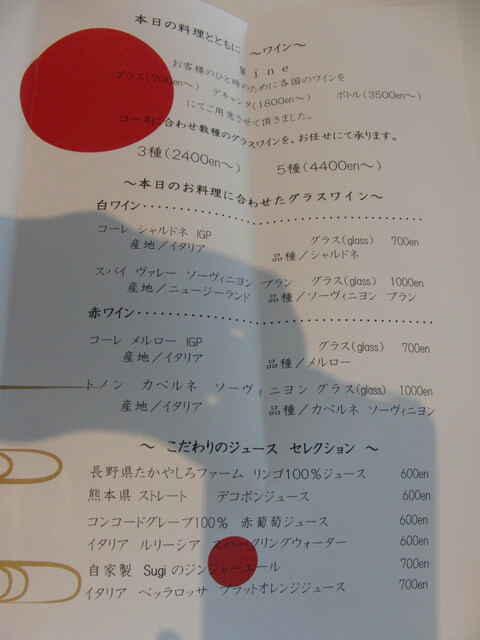 本日の料理とともに ～ワイン～
Wine
お客様のひと時のために各国のワインを
グラス(700en～) デキャンタ(1800en～) ボトル(3500en～)
にてご用意させて頂きました。
コースに合わせ数種のグラスワインを、お任せにて承ります。
3種(2400en～) 5種(4400en～)
～本日のお料理に合わせたグラスワイン～
白ワイン・・・・・・・・・・・・・・・・・・・・・・・・・・・・・・
コーレ シャルドネ IGP グラス(glass) 700en
産地／イタリア 品種／シャルドネ
スパイ ヴァレー ソーヴィニヨン ブラン グラス(glass) 1000en
産地／ニュージーランド 品種／ソーヴィニヨン ブラン
赤ワイン・・・・・・・・・・・・・・・・・・・・・・・・・・・・・・
コーレ メルロー IGP グラス(glass) 700en
産地／イタリア 品種／メルロー
トノン カベルネ ソーヴィニヨン グラス(glass) 1000en
産地／イタリア 品種／カベルネ ソーヴィニヨン
～ こだわりのジュース セレクション ～
長野県たかやしろファーム リンゴ100％ジュース 600en
熊本県 ストレート デコポンジュース 600en
コンコードグレープ100％ 赤葡萄ジュース 600en
イタリア ルリーシア スパークリングウォーター 600en
自家製 Sugiのジンジャーエール 700en
イタリア ベッラロッサ ブラットオレンジジュース 700en